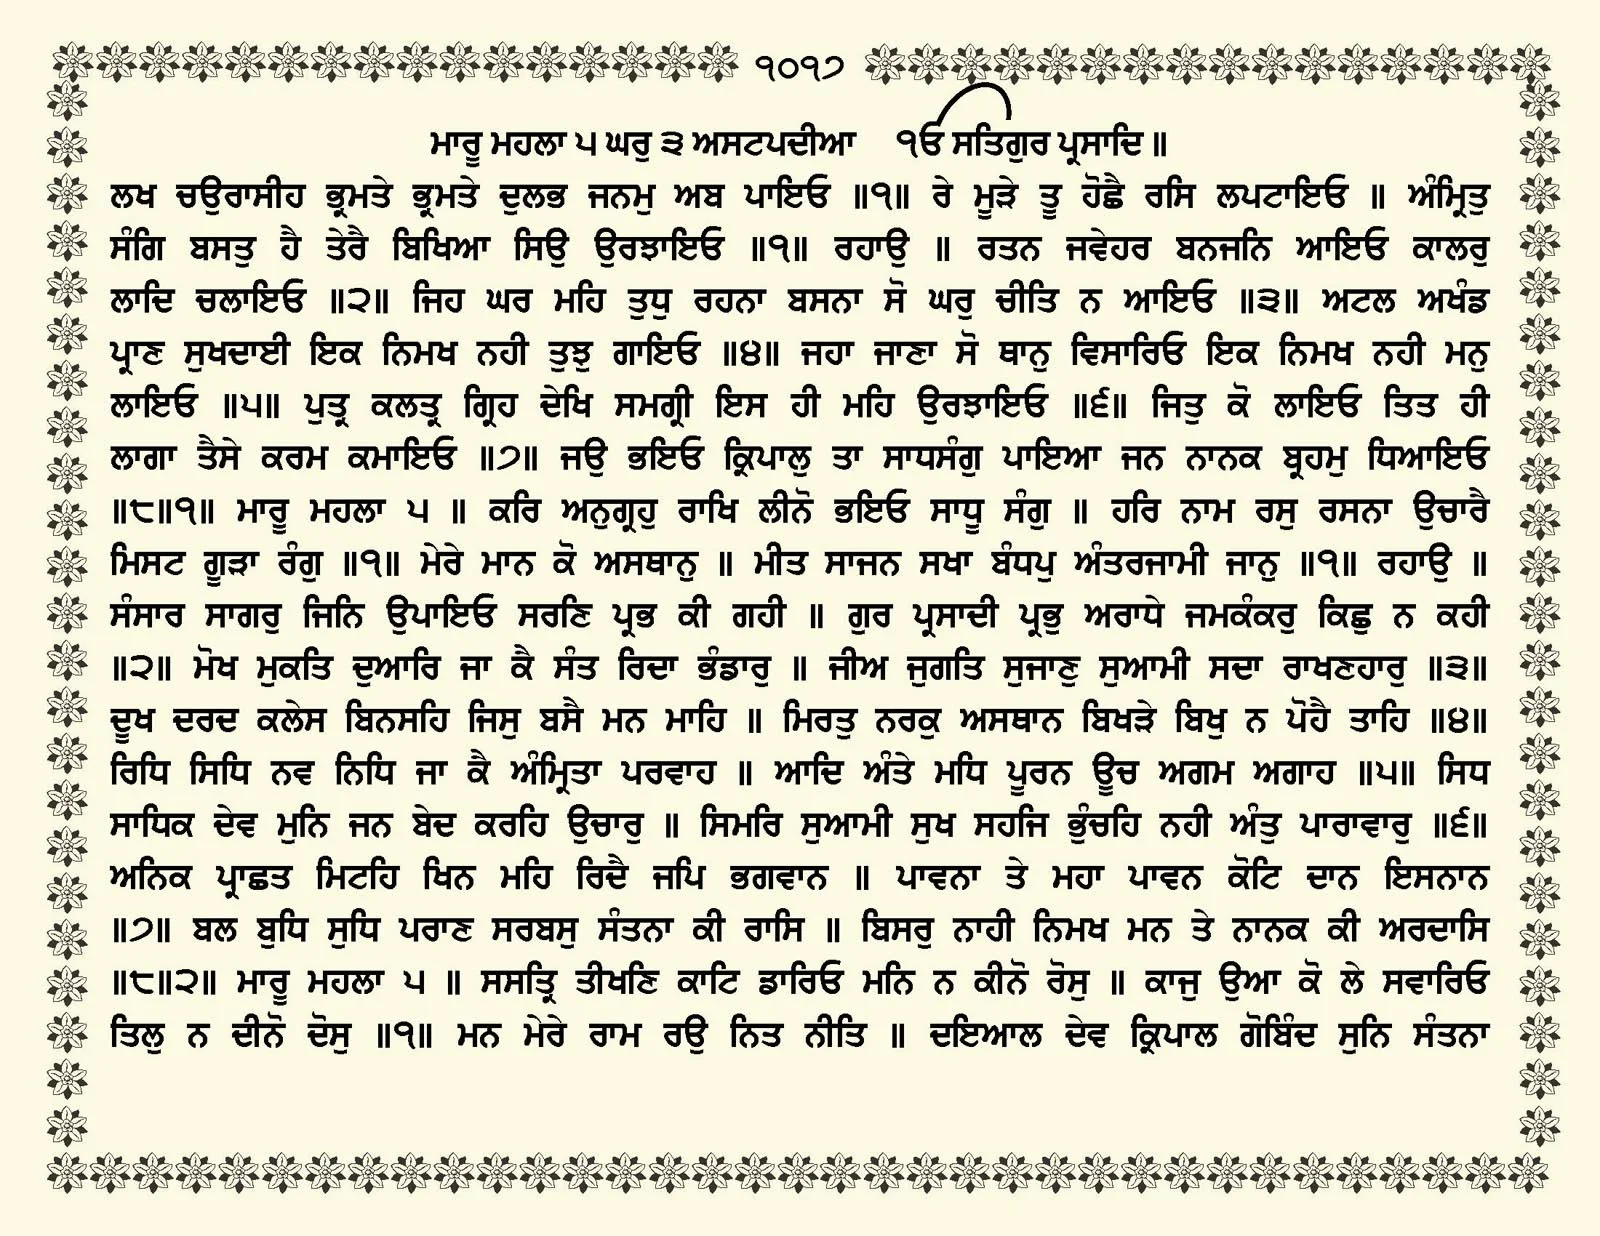 ੧੦੧੭
ਮਾਰੂ ਮਹਲਾ ੫ ਘਰੁ ੩ ਅਸਟਪਦੀਆ ੴ ਸਤਿਗੁਰ ਪ੍ਰਸਾਦਿ ॥
ਲਖ ਚਉਰਾਸੀਹ ਭ੍ਰਮਤੇ ਭ੍ਰਮਤੇ ਦੁਲਭ ਜਨਮੁ ਅਬ ਪਾਇਓ ॥੧॥ ਰੇ ਮੂੜੇ ਤੂ ਹੋਛੈ ਰਸਿ ਲਪਟਾਇਓ ॥ ਅੰਮ੍ਰਿਤੁ
ਸੰਗਿ ਬਸਤੁ ਹੈ ਤੇਰੈ ਬਿਖਿਆ ਸਿਉ ਉਰਝਾਇਓ ॥੧॥ ਰਹਾਉ ॥ ਰਤਨ ਜਵੇਹਰ ਬਨਜਨਿ ਆਇਓ ਕਾਲਰੁ
ਲਾਦਿ ਚਲਾਇਓ ॥੨॥ ਜਿਹ ਘਰ ਮਹਿ ਤੁਧੁ ਰਹਨਾ ਬਸਨਾ ਸੋ ਘਰੁ ਚੀਤਿ ਨ ਆਇਓ ॥੩॥ ਅਟਲ ਅਖੰਡ
ਪ੍ਰਾਣ ਸੁਖਦਾਈ ਇਕ ਨਿਮਖ ਨਹੀ ਤੁਝੁ ਗਾਇਓ ॥੪॥ ਜਹਾ ਜਾਣਾ ਸੋ ਥਾਨੁ ਵਿਸਾਰਿਓ ਇਕ ਨਿਮਖ ਨਹੀ ਮਨੁ
ਲਾਇਓ ॥੫॥ ਪੁਤ੍ਰ ਕਲਤ੍ਰ ਗ੍ਰਿਹ ਦੇਖਿ ਸਮਗ੍ਰੀ ਇਸ ਹੀ ਮਹਿ ਉਰਝਾਇਓ ॥੬॥ ਜਿਤੁ ਕੋ ਲਾਇਓ ਤਿਤ ਹੀ
ਲਾਗਾ ਤੈਸੇ ਕਰਮ ਕਮਾਇਓ ॥੭॥ ਜਉ ਭਇਓ ਕ੍ਰਿਪਾਲੁ ਤਾ ਸਾਧਸੰਗੁ ਪਾਇਆ ਜਨ ਨਾਨਕ ਬ੍ਰਹਮੁ ਧਿਆਇਓ
॥੮॥੧॥ ਮਾਰੂ ਮਹਲਾ ੫ ॥ ਕਰਿ ਅਨੁਗ੍ਰਹੁ ਰਾਖਿ ਲੀਨੋ ਭਇਓ ਸਾਧੂ ਸੰਗੁ ॥ ਹਰਿ ਨਾਮ ਰਸੁ ਰਸਨਾ ਉਚਾਰੈ
ਮਿਸਟ ਗੂੜਾ ਰੰਗੁ ॥੧॥ ਮੇਰੇ ਮਾਨ ਕੋ ਅਸਥਾਨੁ ॥ ਮੀਤ ਸਾਜਨ ਸਖਾ ਬੰਧਪੁ ਅੰਤਰਜਾਮੀ ਜਾਨੁ ॥੧॥ ਰਹਾਉ ॥
ਸੰਸਾਰ ਸਾਗਰੁ ਜਿਨਿ ਉਪਾਇਓ ਸਰਣਿ ਪ੍ਰਭ ਕੀ ਗਹੀ ॥ ਗੁਰ ਪ੍ਰਸਾਦੀ ਪ੍ਰਭੁ ਅਰਾਧੇ ਜਮਕੰਕਰੁ ਕਿਛੁ ਨ ਕਹੀ
॥੨॥ ਮੋਖ ਮੁਕਤਿ ਦੁਆਰਿ ਜਾ ਕੈ ਸੰਤ ਰਿਦਾ ਭੰਡਾਰੁ ॥ ਜੀਅ ਜੁਗਤਿ ਸੁਜਾਣੁ ਸੁਆਮੀ ਸਦਾ ਰਾਖਣਹਾਰੁ ॥੩॥
ਦੂਖ ਦਰਦ ਕਲੇਸ ਬਿਨਸਹਿ ਜਿਸੁ ਬਸੈ ਮਨ ਮਾਹਿ ॥ ਮਿਰਤੁ ਨਰਕੁ ਅਸਥਾਨ ਬਿਖੜੇ ਬਿਖੁ ਨ ਪੋਹੈ ਤਾਹਿ ॥੪॥
ਰਿਧਿ ਸਿਧਿ ਨਵ ਨਿਧਿ ਜਾ ਕੈ ਅੰਮ੍ਰਿਤਾ ਪਰਵਾਹ ॥ ਆਦਿ ਅੰਤੇ ਮਧਿ ਪੂਰਨ ਊਚ ਅਗਮ ਅਗਾਹ ॥੫॥ ਸਿਧ
ਸਾਧਿਕ ਦੇਵ ਮੁਨਿ ਜਨ ਬੇਦ ਕਰਹਿ ਉਚਾਰੁ ॥ ਸਿਮਰਿ ਸੁਆਮੀ ਸੁਖ ਸਹਜਿ ਭੁੰਚਹਿ ਨਹੀ ਅੰਤੁ ਪਾਰਾਵਾਰੁ ॥੬॥
ਅਨਿਕ ਪ੍ਰਾਛਤ ਮਿਟਹਿ ਖਿਨ ਮਹਿ ਰਿਦੈ ਜਪਿ ਭਗਵਾਨ ॥ ਪਾਵਨਾ ਤੇ ਮਹਾ ਪਾਵਨ ਕੋਟਿ ਦਾਨ ਇਸਨਾਨ
॥੭॥ ਬਲ ਬੁਧਿ ਸੁਧਿ ਪਰਾਣ ਸਰਬਸੁ ਸੰਤਨਾ ਕੀ ਰਾਸਿ ॥ ਬਿਸਰੁ ਨਾਹੀ ਨਿਮਖ ਮਨ ਤੇ ਨਾਨਕ ਕੀ ਅਰਦਾਸਿ
॥੮॥੨॥ ਮਾਰੂ ਮਹਲਾ ੫ ॥ ਸਸਤ੍ਰਿ ਤੀਖਣਿ ਕਾਟਿ ਡਾਰਿਓ ਮਨਿ ਨ ਕੀਨੋ ਰੋਸੁ ॥ ਕਾਜੁ ਉਆ ਕੋ ਲੇ ਸਵਾਰਿਓ
ਤਿਲੁ ਨ ਦੀਨੋ ਦੋਸੁ ॥੧॥ ਮਨ ਮੇਰੇ ਰਾਮ ਰਉ ਨਿਤ ਨੀਤਿ ॥ ਦਇਆਲ ਦੇਵ ਕ੍ਰਿਪਾਲ ਗੋਬਿੰਦ ਸੁਨਿ ਸੰਤਨਾ